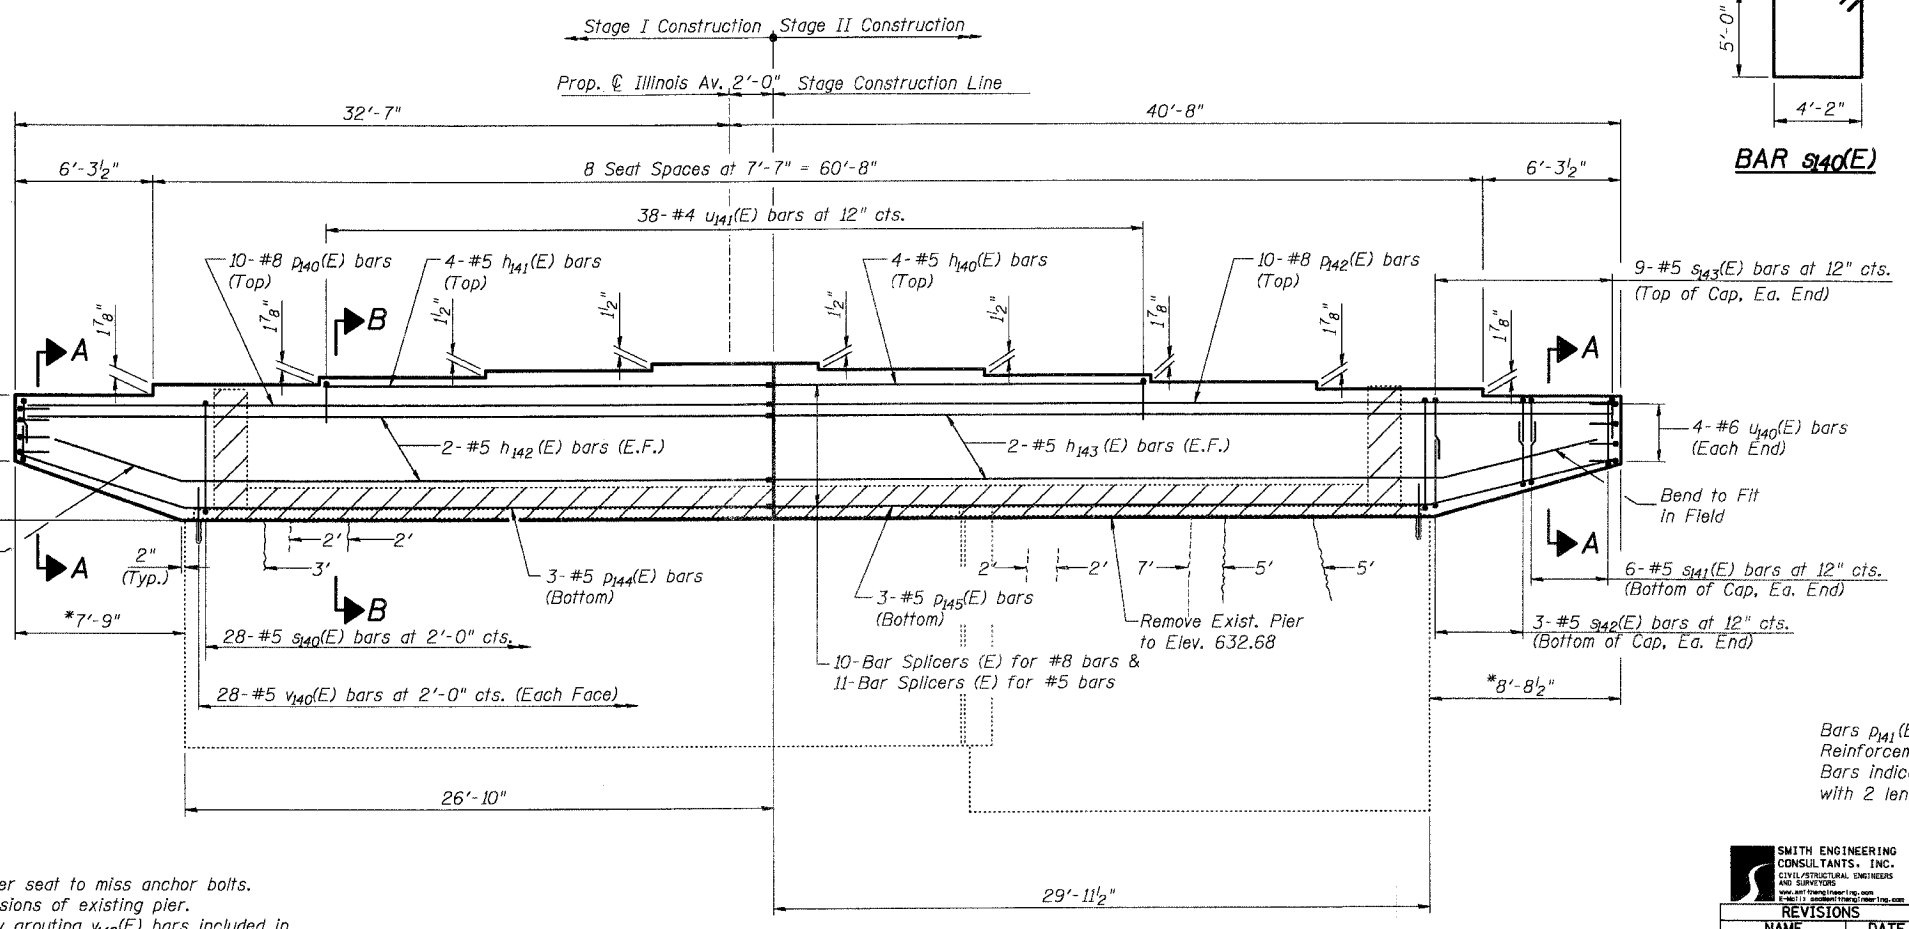 Stage I Construction
Stage II Construction
Prop. ℄ Illinois Av.
2'-0"
Stage Construction Line
5'-0"
4'-2"
BAR s140(E)
32'-7"
40'-8"
6'-3½"
8 Seat Spaces at 7'-7" = 60'-8"
6'-3½"
38-#4 u141(E) bars at 12" cts.
10-#8 p140(E) bars
(Top)
4-#5 h141(E) bars
(Top)
4-#5 h140(E) bars
(Top)
10-#8 p142(E) bars
(Top)
9-#5 s143(E) bars at 12" cts.
(Top of Cap, Ea. End)
1⅞"
1⅞"
1½"
1½"
1½"
1½"
1⅞"
1⅞"
1⅞"
A
B
A
2-#5 h142(E) bars (E.F.)
2-#5 h143(E) bars (E.F.)
4-#6 u140(E) bars
(Each End)
Bend to Fit
in Field
A
B
A
2"
(Typ.)
2'
2'
3'
2'
2'
7'
5'
5'
3-#5 p144(E) bars
(Bottom)
3-#5 p145(E) bars
(Bottom)
Remove Exist. Pier
to Elev. 632.68
6-#5 s141(E) bars at 12" cts.
(Bottom of Cap, Ea. End)
3-#5 s142(E) bars at 12" cts.
(Bottom of Cap, Ea. End)
*7'-9"
28-#5 s140(E) bars at 2'-0" cts.
10-Bar Splicers (E) for #8 bars &
11-Bar Splicers (E) for #5 bars
28-#5 v140(E) bars at 2'-0" cts. (Each Face)
*8'-8½"
26'-10"
29'-11½"
Bars p141(E
Reinforcem
Bars indic
with 2 len
er seat to miss anchor bolts.
sions of existing pier.
y grouting v140(E) bars included in
SMITH ENGINEERING
CONSULTANTS, INC.
CIVIL/STRUCTURAL ENGINEERS
AND SURVEYORS
www.smithengineering.com
REVISIONS
NAME
DATE